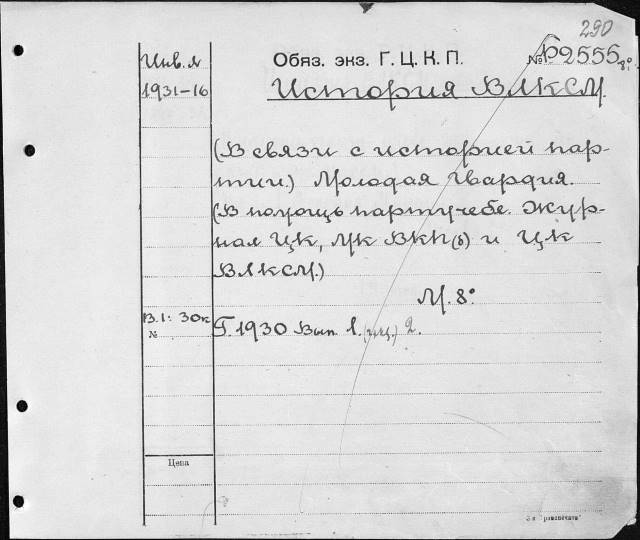 290
Инв. №
Обяз. экз. Г.Ц.К.П.
№ Р2555 8°.
1931-16
История ВЛКСМ.
(В связи с историей пар-
тии.) Молодая Гвардия.
(В помощь партучебе. Жур-
нал ЦК, МК ВКП(б) и ЦК
ВЛКСМ.)
М. 8°
В.1: 30к
№
Г. 1930 Вып. 1. 2.
Цена